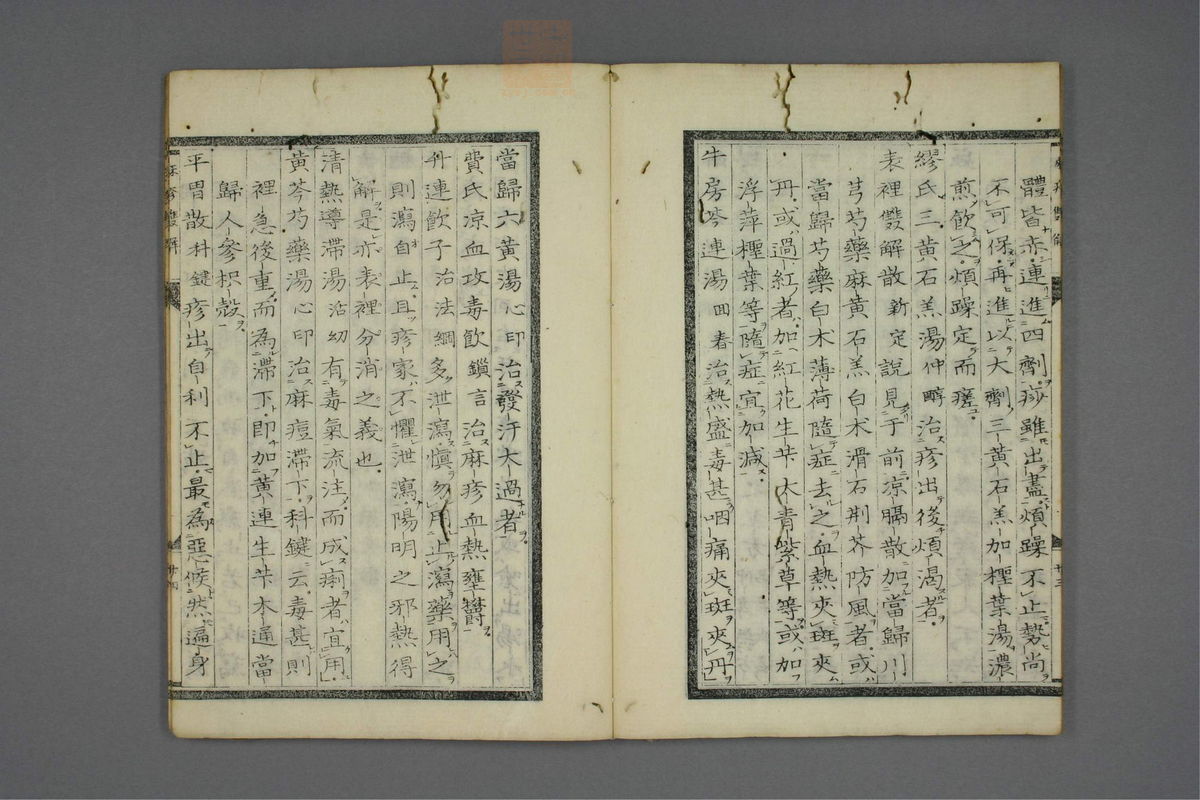 體皆赤連進四劑痧雖出盡煩躁不止勢尚
不可保再進以大劑三黃石羔加檉葉湯濃
煎飲之煩躁定而瘥
繆氏三黃石羔湯仲醇治疹出後煩渴者
表裡雙解散新定說見于前凉膈散加當歸川
芎芍藥麻黃石羔白朮滑石荆芥防風者或
當歸芍藥白朮薄荷隨症去之血熱夾斑夾
丹或過紅者加紅花生芐大青紫草等或加
浮萍檉葉等隨症宜加減
牛房芩連湯回春治熱盛毒甚咽痛夾斑夾丹
當歸六黃湯心印治發汗大過者
費氏凉血攻毒飲鎖言治麻疹血熱壅欝
升連飲子治法綱多泄瀉慎勿用止瀉藥用之
則瀉自止且疹家不懼泄瀉陽明之邪熱得
解是亦表裡分消之義也
清熱導滯湯活幼有毒氣流注而成痢者宜用
黃芩芍藥湯心印治麻痘滯下科鍵云毒甚則
裡急後重而為滯下即加黃連生芐木通當
歸人參枳殼
平胃散朴鍵疹出自利不止最為惡候然遍身